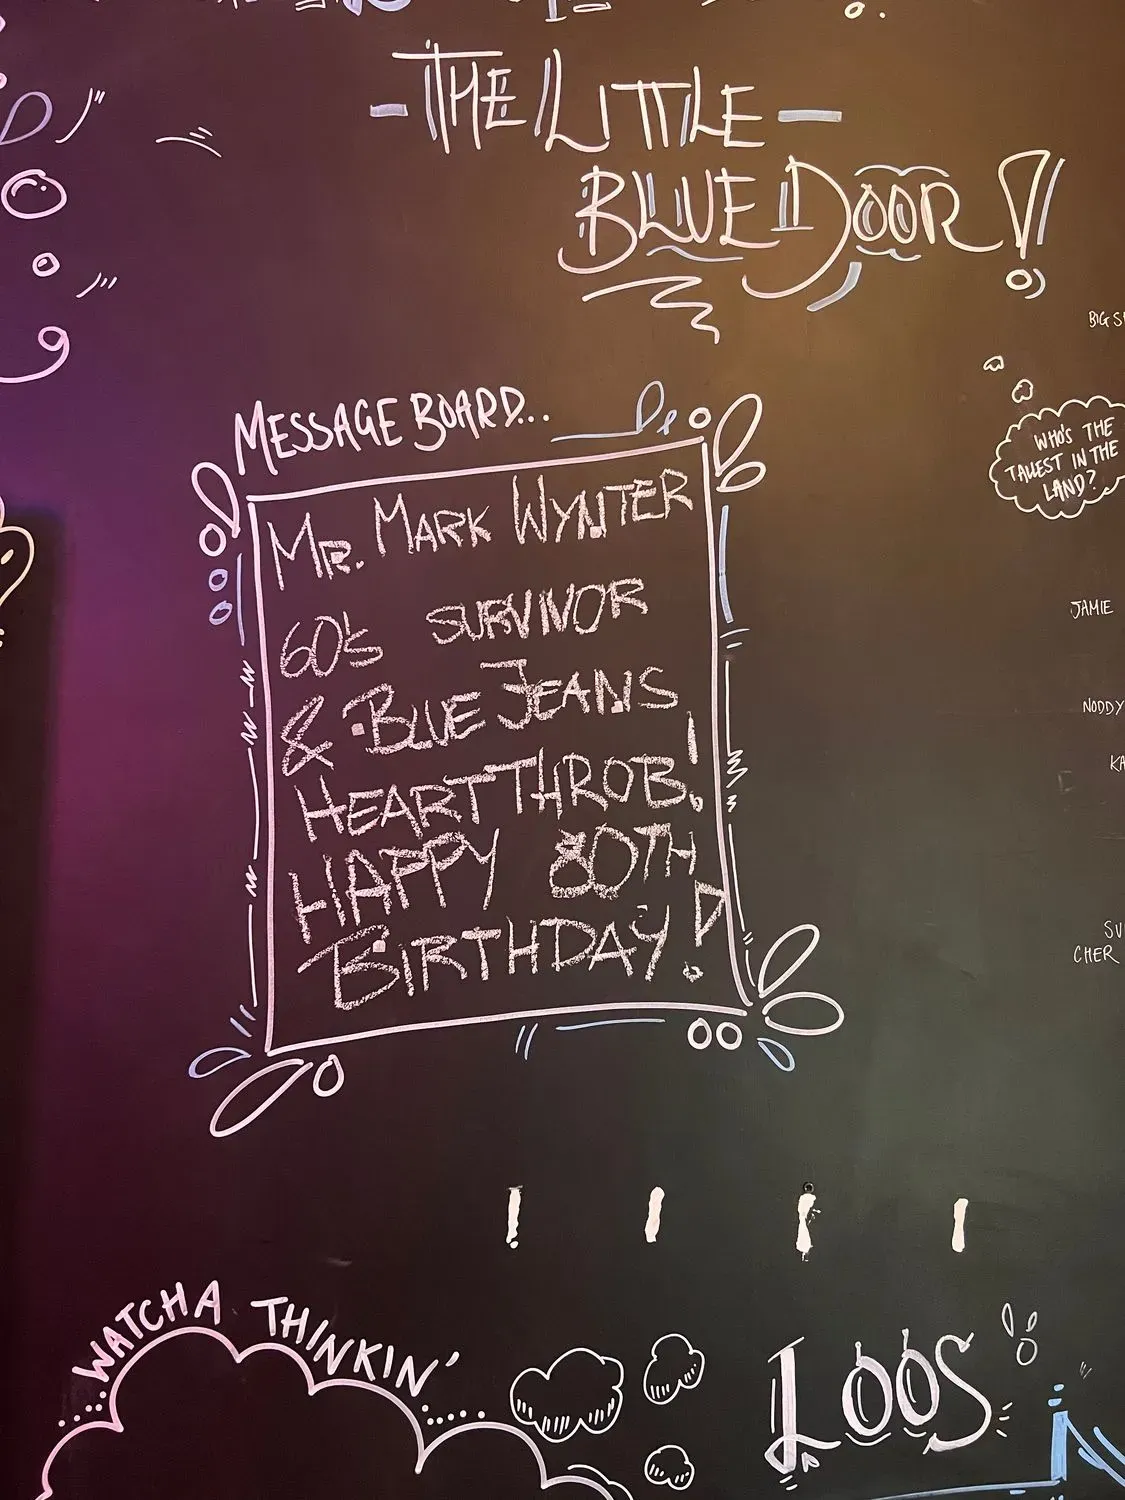 -THE LITTLE-
BLUE DOOR!
BIG
MESSAGE BOARD...
WHO'S THE
TALLEST IN THE
LAND?
MR. MARK WYNTER
60'S SURVIVOR
& BLUE JEANS
HEARTTHROB!
HAPPY 80TH
BIRTHDAY!
JAMIE
NODDY
CHER
WATCHA THINKIN'
LOOS